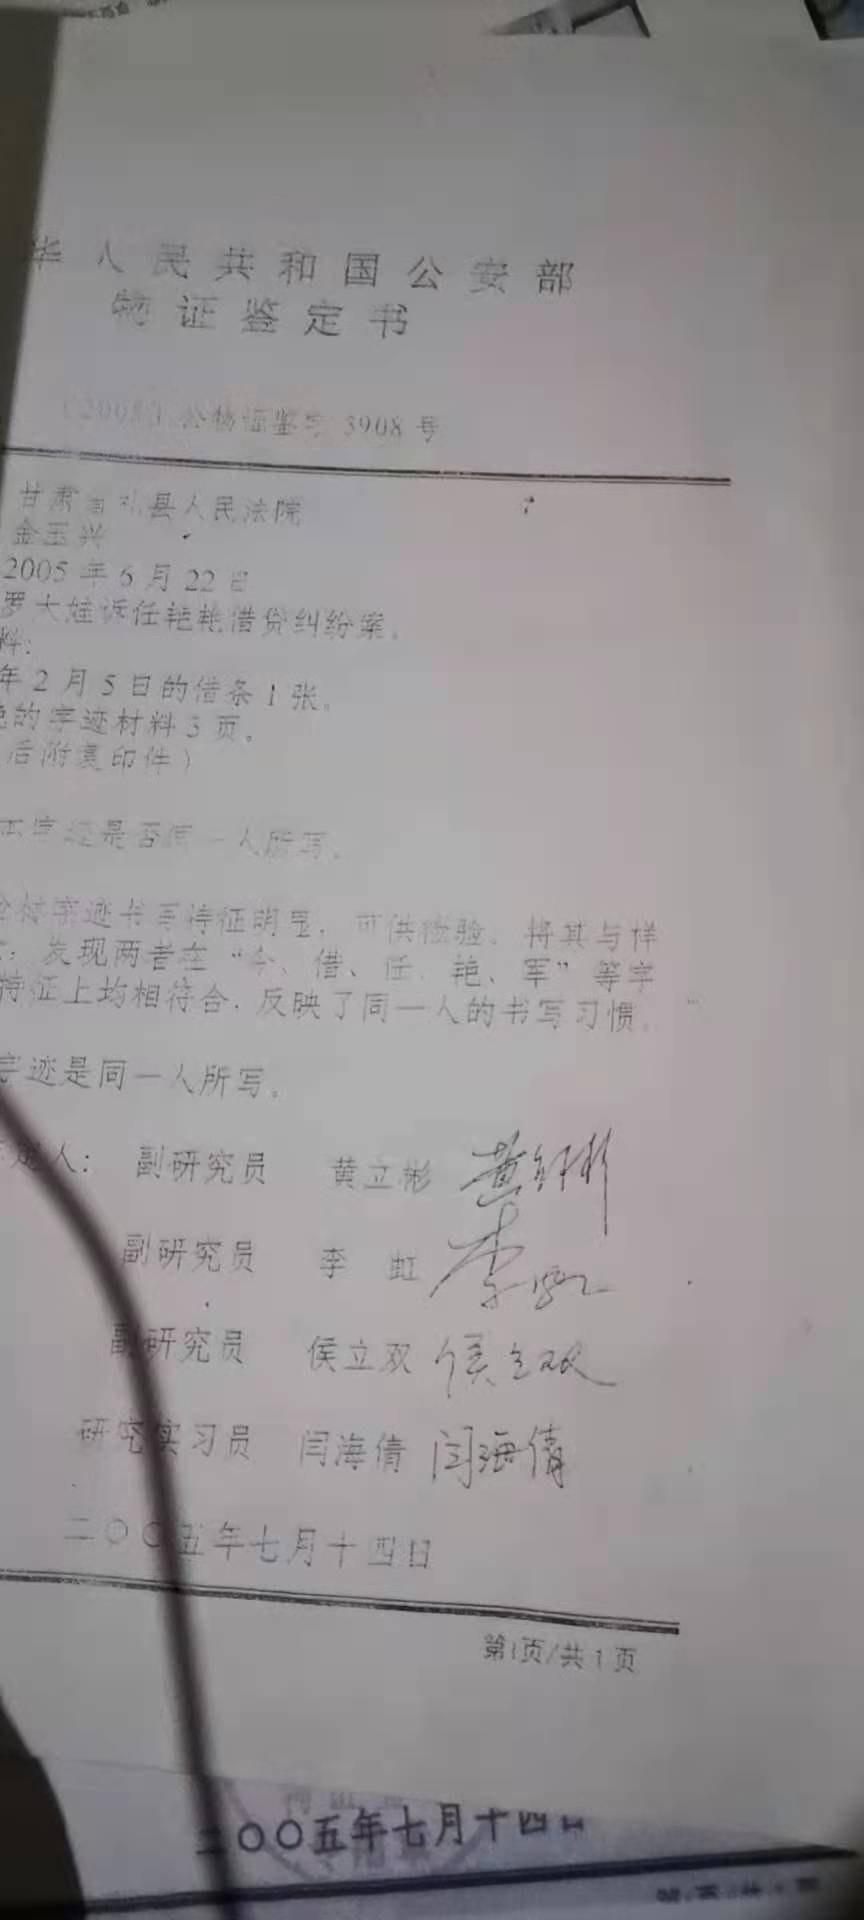 华人民共和国公安部
物证鉴定书
公物证鉴字 3908 号
甘肃省礼县人民法院
金玉兴
2005 年 6 月 22 日
罗大娃诉任艳艳借贷纠纷案。
料：
年 2 月 5 日的借条 1 张。
的字迹材料 3 页。
后附复印件）
是否同一人所写。
检材字迹书写特征明显，可供检验。将其与样
：发现两者在“今、借、任、艳、军”等字
特征上均相符合，反映了同一人的书写习惯。
字迹是同一人所写。
定人： 副研究员 黄立彬 黄立彬
副研究员 李 虹 李虹
副研究员 侯立双 侯立双
研究实习员 闫海倩 闫海倩
二〇〇五年七月十四日
第1页/共 1 页
二〇〇五年七月十四日